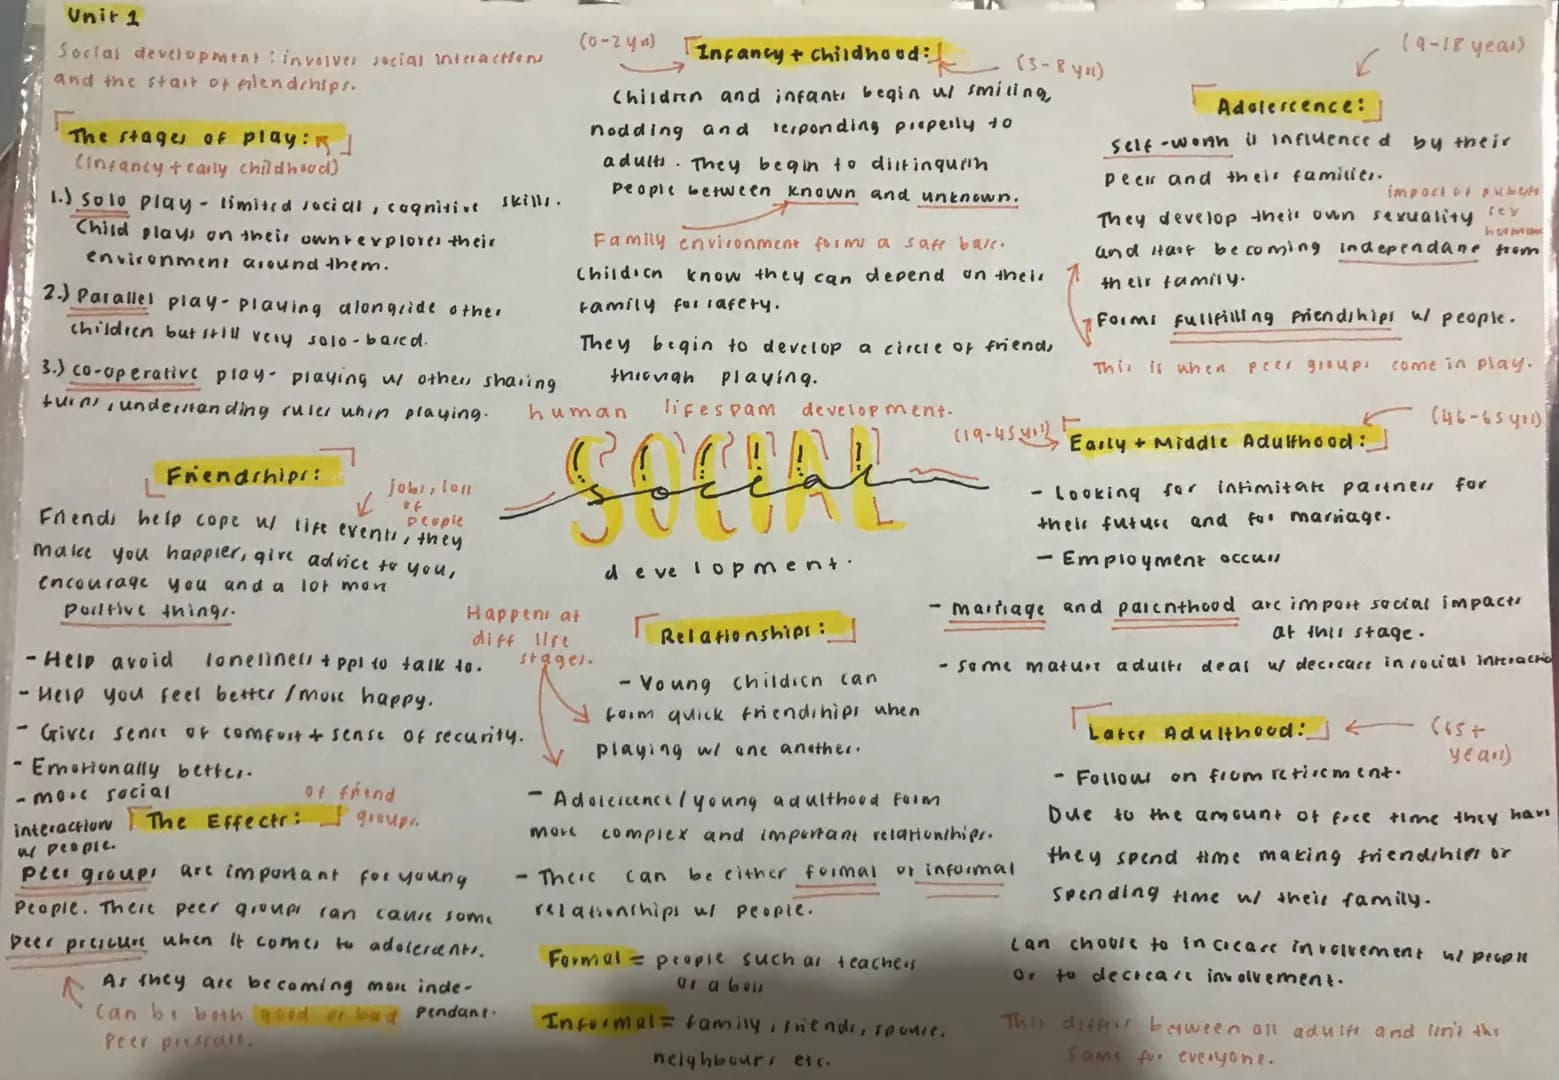 Unit 1
Social development: involves social interactions
and the start of friendships.
The stages of play:
(Infancy + early childhood)
1.) Solo play - limited social, cognitive skills.
Child plays on their own + explores their
environment around them.
2.) Parallel play - playing alongside other
children but still very solo-based.
3.) co-operative play - playing w/ others sharing
turns, understanding rules when playing.
(0-2 yrs)
Infancy + childhood:
(3-8 yrs)
Children and infants begin w/ smiling,
nodding and responding properly to
adults. They begin to distinguish
people between known and unknown.
Family environment forms a safe base.
Children know they can depend on their
family for safety.
They begin to develop a circle of friends
through playing.
(9-18 years)
Adolescence:
Self-worth is influenced by their
peers and their families.
impact of puberty
They develop their own sexuality sex
hormones
and start becoming independane from
their family.
Forms fullfilling friendships w/ people.
This is when peer groups come in play.
human lifespam development.
SOCIAL
social
development.
Friendships:
jobs, loss
of
people
Friends help cope w/ life events, they
make you happier, give advice to you,
encourage you and a lot more
positive things.
- Help avoid loneliness + ppl to talk to.
- Help you feel better / more happy.
- Gives sense of comfort + sense of security.
- Emotionally better.
- more social
interaction
w/ people.
The Effects:
of friend
groups.
Peer groups are important for young
people. These peer groups can cause some
peer pressure when it comes to adolescents.
As they are becoming more inde-
pendant.
can be both good or bad
peer pressure.
Happens at
diff life
stages.
Relationships:
- Young children can
form quick friendships when
playing w/ one another.
- Adolescence / young adulthood form
more complex and important relationships.
- There can be either formal or informal
relationships w/ people.
Formal = people such as teachers
or a boss
Informal = family, friends, spouse,
neighbours etc.
(19-45 yrs)
Early + Middle Adulthood:
(46-65 yrs)
- Looking for intimitate partners for
their future and for marriage.
- Employment occurs
- marriage and parenthood are import social impacts
at this stage.
- some mature adults deal w/ decrease in social interaction
Later Adulthood:
(65+
years)
- Follows on from retirement.
Due to the amount of free time they have
they spend time making friendships or
spending time w/ their family.
Can choose to increase involvement w/ people
or to decrease involvement.
This differs between all adults and isn't the
same for everyone.